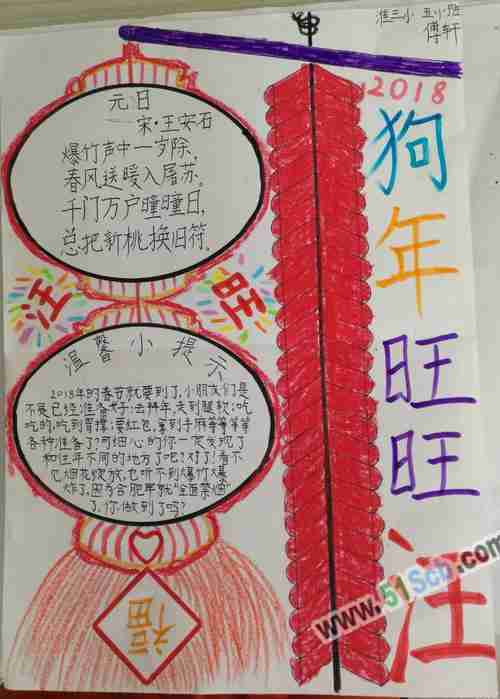 准三小 五(9)班
傅轩
2018
狗年旺旺汪
元日
宋·王安石
爆竹声中一岁除,
春风送暖入屠苏。
千门万户曈曈日,
总把新桃换旧符.
汪 旺
温馨小提示
2018年的春节就要到了,小朋友们是
不是已经准备好:去拜年,走到腿软;吃
吃的,吃到胃撑;要红包,拿到手麻等等等等
各种准备了?可细心的你一定发现了
和往年不同的地方了吧?对了!看不
见烟花绽放,也听不到爆竹爆
炸了.因为合肥早就"全面禁烟"
了,你做到了吗?
福
www.51Scb.com